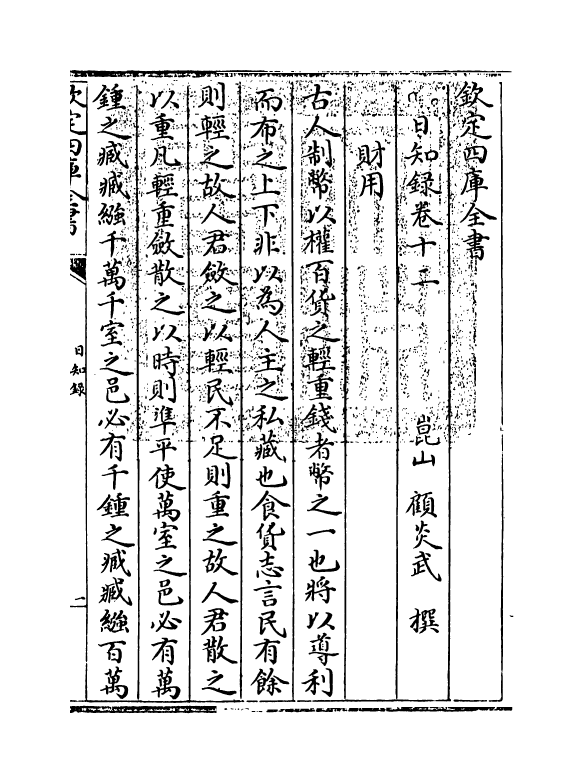 欽定四庫全書
日知錄卷十二
崑山 顧炎武 撰
財用
古人制幣以權百貨之輕重錢者幣之一也將以導利
而布之上下非以為人主之私藏也食貨志言民有餘
則輕之故人君斂之以輕民不足則重之故人君散之
以重凡輕重斂散之以時則準平使萬室之邑必有萬
鍾之臧臧繈千萬千室之邑必有千鍾之臧臧繈百萬
欽定四庫全書
日知錄